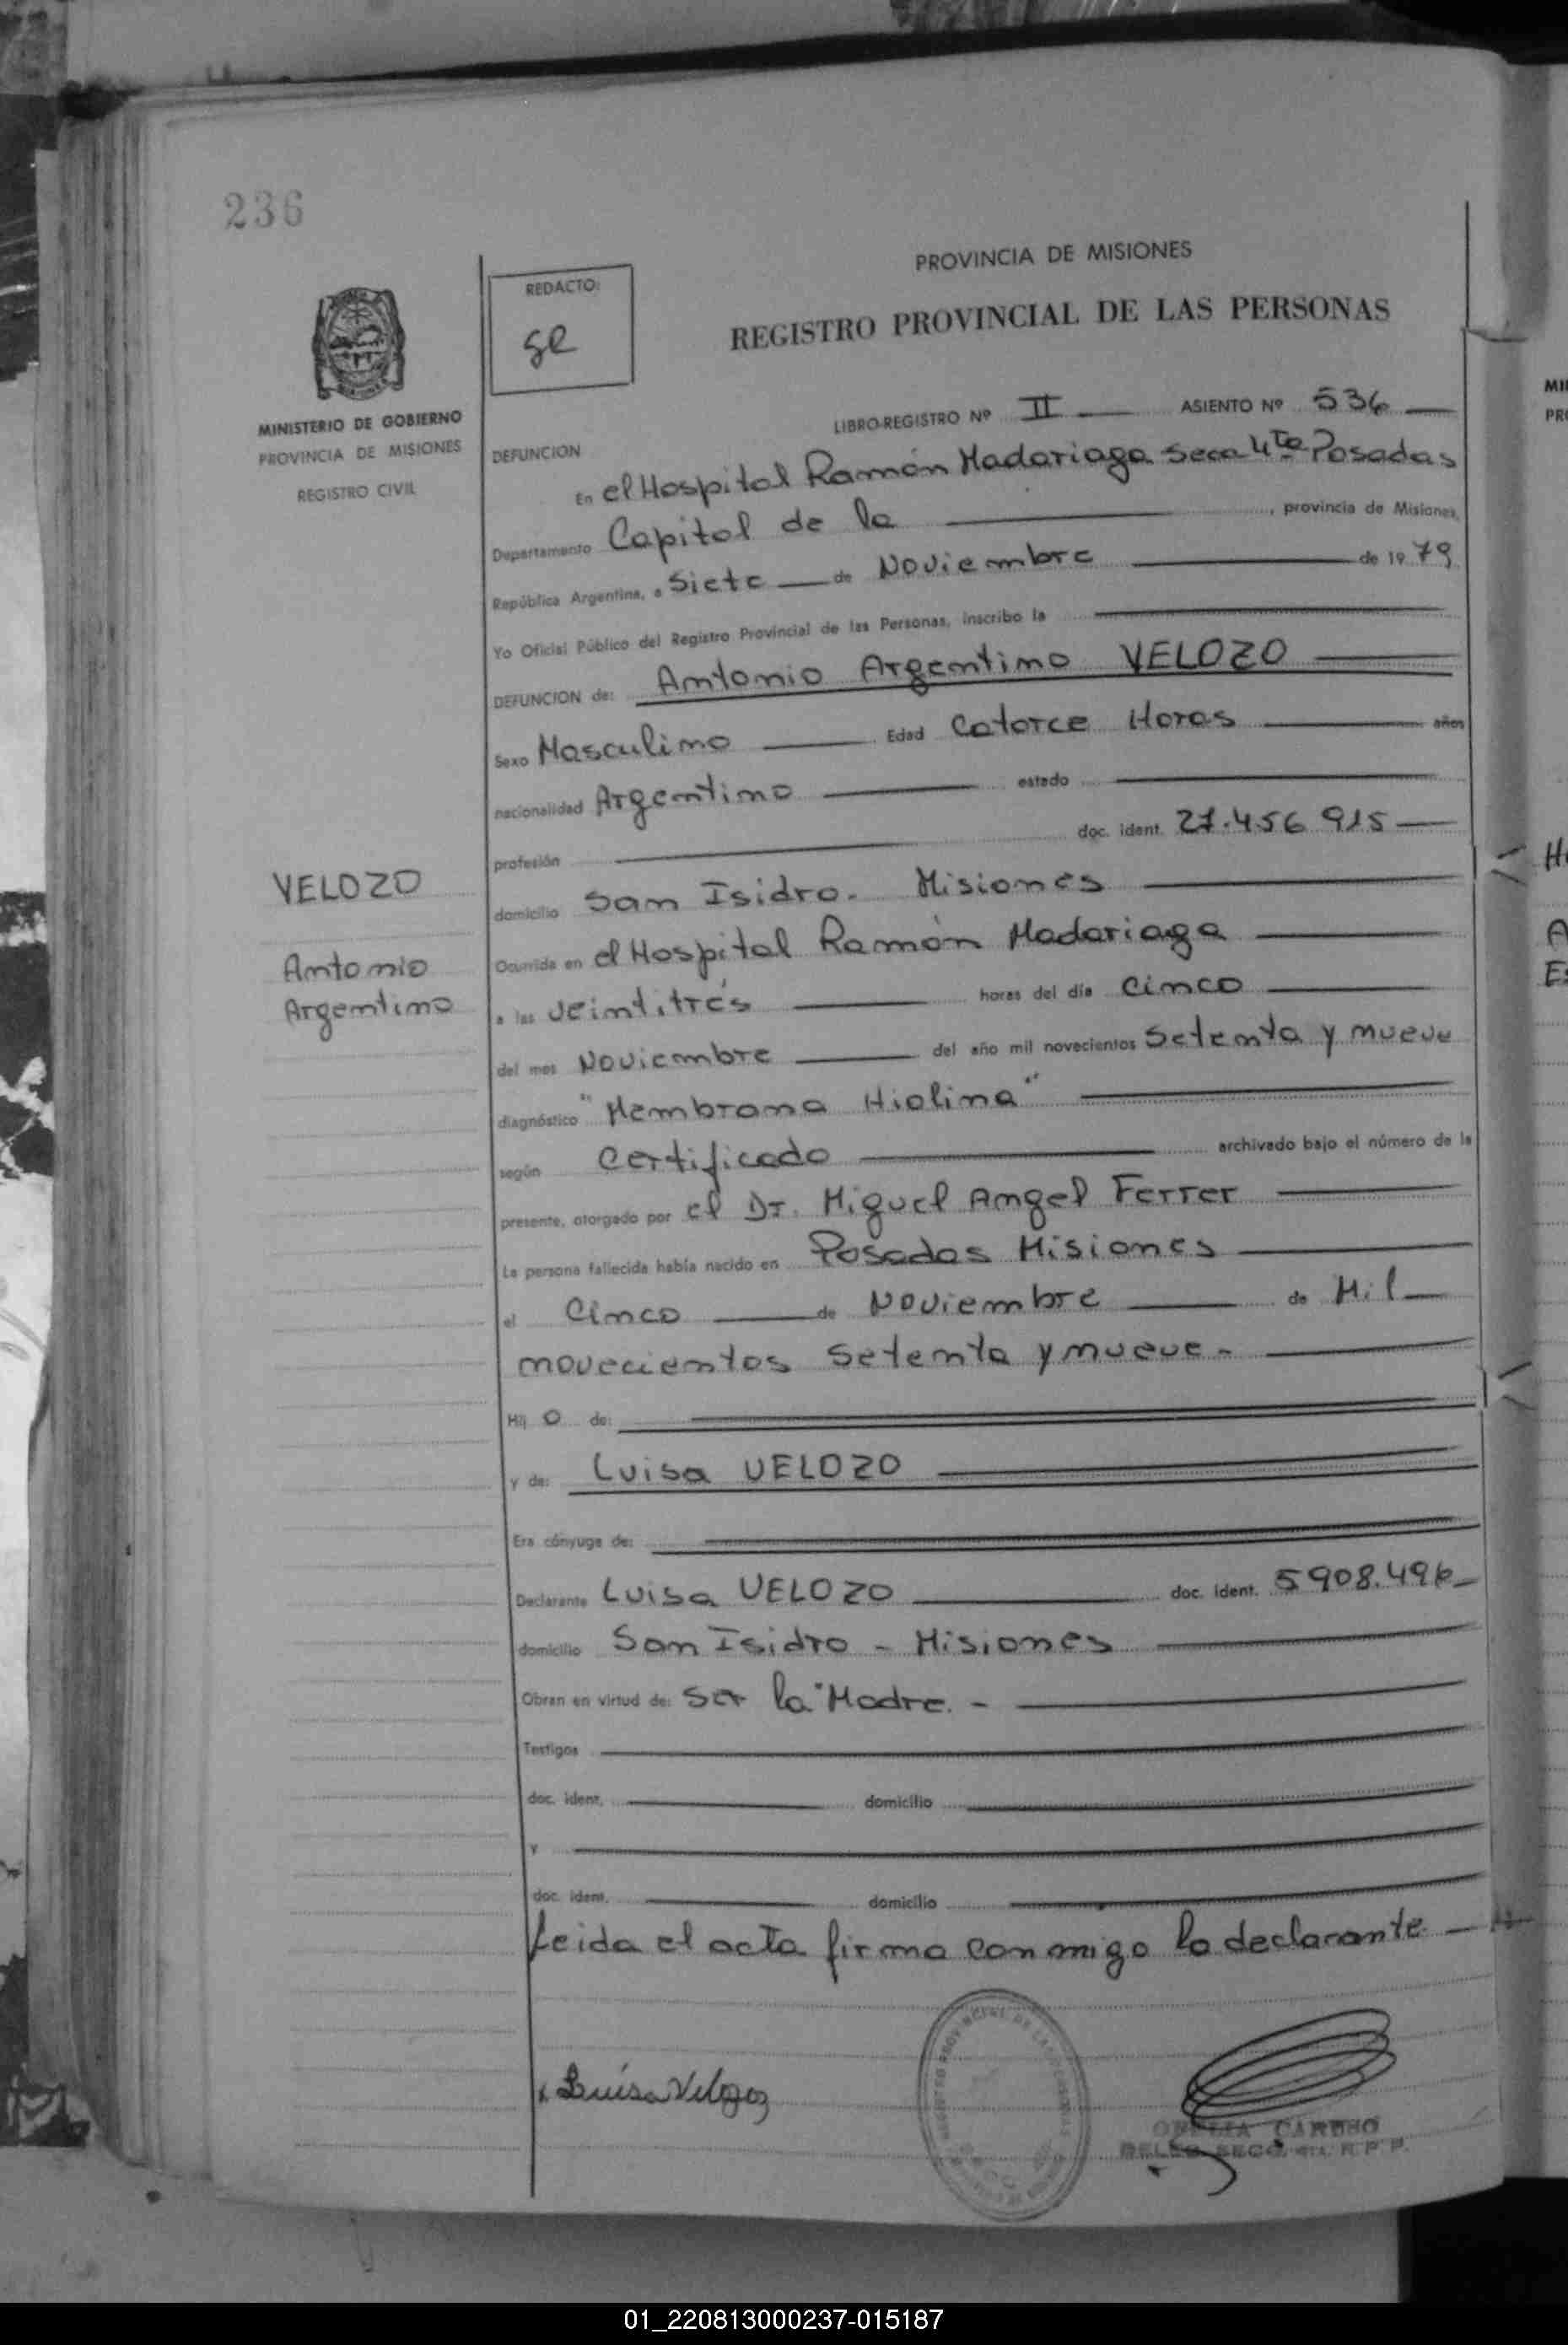 236
PROVINCIA DE MISIONES
REDACTO:
REGISTRO PROVINCIAL DE LAS PERSONAS
MINISTERIO DE GOBIERNO
PROVINCIA DE MISIONES
REGISTRO CIVIL
LIBRO-REGISTRO Nº II ASIENTO Nº 536
DEFUNCION
En el Hospital Ramón Madariaga Secc 4ta Posadas
Departamento Capital de la, provincia de Misiones,
República Argentina, a Siete de Noviembre de 1979
Yo Oficial Público del Registro Provincial de las Personas, inscribo la
DEFUNCION de: Antonio Argentino VELOZO
Sexo Masculino Edad Catorce Horas años
nacionalidad Argentino estado
profesión doc. ident. 27.456 915
VELOZO
Antonio
Argentino
domicilio San Isidro. Misiones
Ocurrida en el Hospital Ramón Madariaga
a las veintitrés horas del día cinco
del mes Noviembre del año mil novecientos setenta y nueve
diagnóstico "Membrana Hialina"
según Certificado archivado bajo el número de la
presente, otorgado por el Dr. Miguel Angel Ferrer
La persona fallecida había nacido en Posadas Misiones
el Cinco de Noviembre de Mil
novecientos setenta y nueve.-
Hij o de:
y de: Luisa VELOZO
Era cónyuge de:
Declarante Luisa VELOZO doc. ident. 5908.496
domicilio San Isidro - Misiones
Obran en virtud de: ser la "Madre. -
Testigos
doc. ident. domicilio
y
doc. ident. domicilio
Leida el acta firma conmigo la declarante
Luisa Velozo
OFELIA CARUSO
R. P. P.
MI
PR
H
A
E
01_220813000237-015187